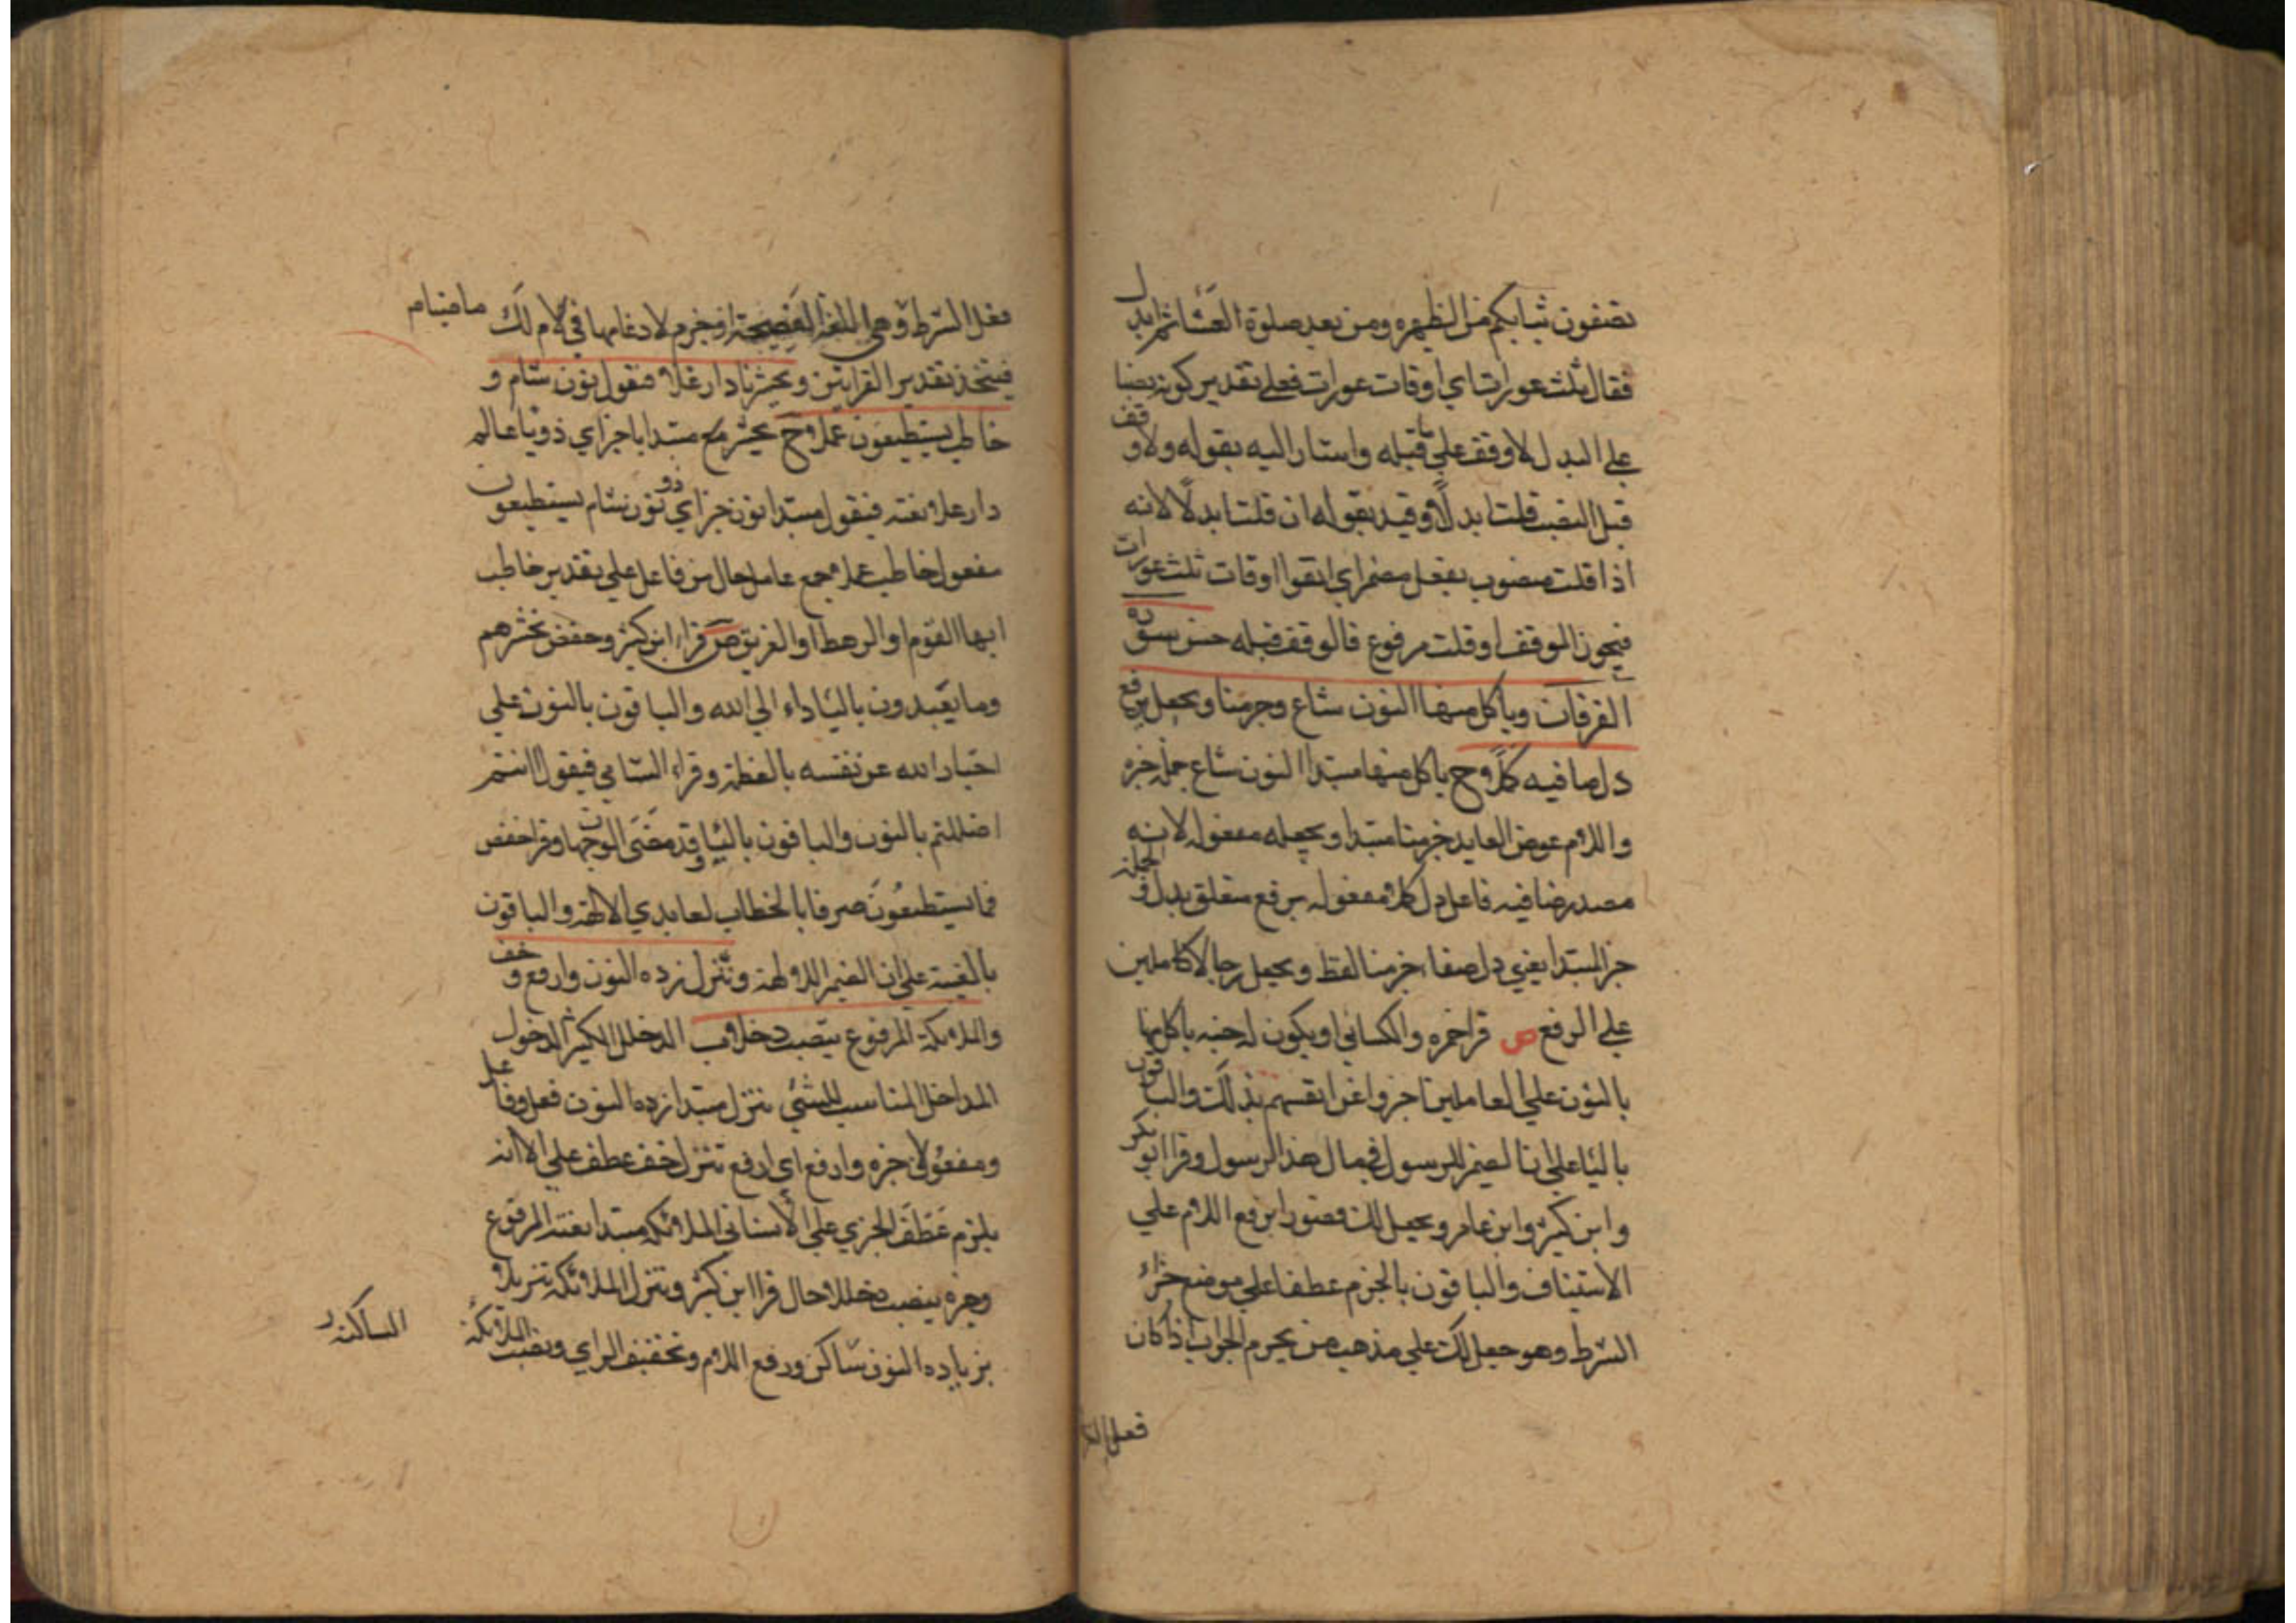 تضعون ثيابكم من الظهيره ومن بعد صلوة العشا ثم ابدل
فقال ثلث عورات اي اوقات عورات فعلي تقدير كونه نصبا
علي البدل لا وقف علي ما قبله واشار اليه بقوله ولا وقف
قبل النصب قلت ابدلا وقيد بقوله ان قلت ابدلا لانه
اذا قلت منصوب بفعل مضمر اي اتقوا اوقات ثلث عورات
فيجوز الوقف او قلت مرفوع فالوقف قبله حسن سورة
الفرقان وياكل منها النون شاع وجزمنا ويجعل برفع
دل صافيه كملا وح ياكل منها مبتدا النون شاع جملة خبره
واللام عوض العايد جزمنا مبتدا ويجعله مفعوله لانه
مصدر صافيه فاعل دل كملا مفعوله برفع متعلق بدل والجملة
خبر المبتدا يعني دل صفا جزمنا لفظ ويجعل رجالا كاملين
علي الرفع ص قرا حمزه والكسائي او يكون له جنه ياكل منها
بالنون علي ان العاملين اخبروا عن انفسهم بذلك والباقون
باليا علي ان الضمير للرسول في مال هذا الرسول وقرا ابو بكر
وابن كثير وابن عامر ويجعل لك قصورا برفع اللام علي
الاستيناف والباقون بالجزم عطفا علي موضع جزاء
الشرط وهو جعل لك علي مذهب من يجزم الجواب اذا كان
فعل الشرط
فعل الشرط وهي اللغة الفصيحة او جزم لادغامها في لام لك
فيتخذ تقدير القرائتين ونحشر يا دار علا فنقول نون شام و
خاطب يستطيعون عملا وح نحشر مع مبتدا يا خبر اي ذو يا عالم
دار علا نعته فيقول مبتدا نون خبر اي ذو نون شام يستطيعون
مفعول خاطب عملا جمع عامل حال من فاعل علي تقدير خاطب
ايها القوم او الرهط او الفريق ص قراء ابن كثير وحفص يحشرهم
وما يعبدون بالياء الي الله والباقون بالنون علي
اخبار الله عن نفسه بالعظمة وقراء الشامي فيقول اانتم
اضللتم بالنون والباقون باليا وقد مضي الوجهان وقرا حفص
فما تستطيعون صرفا بالخطاب لعابدي الالهة والباقون
بالغيبة علي ان الضمير للالهة وننزل زده النون وارفع وخف
والملائكة المرفوع ينصب دخللا ب الدخلل الكثير الدخول
المداخل المناسب للشئ ننزل مبتدا زده النون فعل وفاعل
ومفعول خبره وارفع اي ارفع ننزل خف عطف علي الا انه
يلزم عطف الخبري علي الانشائي الملائكة مبتدا نعته المرفوع
وخبره ينصب دخللا حال قرا ابن كثير وننزل الملائكة تنزيلا
بزيادة النون ساكن ورفع اللام وتخفيف الزاي ونصب الملائكة
الساكنة